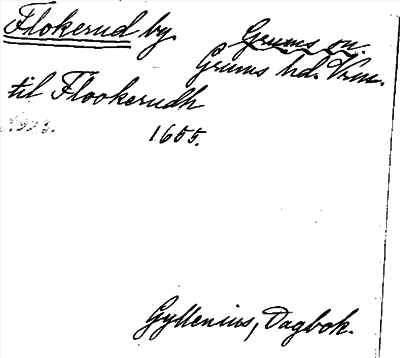 Flokerud by. Grums sn.
Grums hd. Vrm.
til Flookerudh
1655.
Gyllenius, Dagbok.